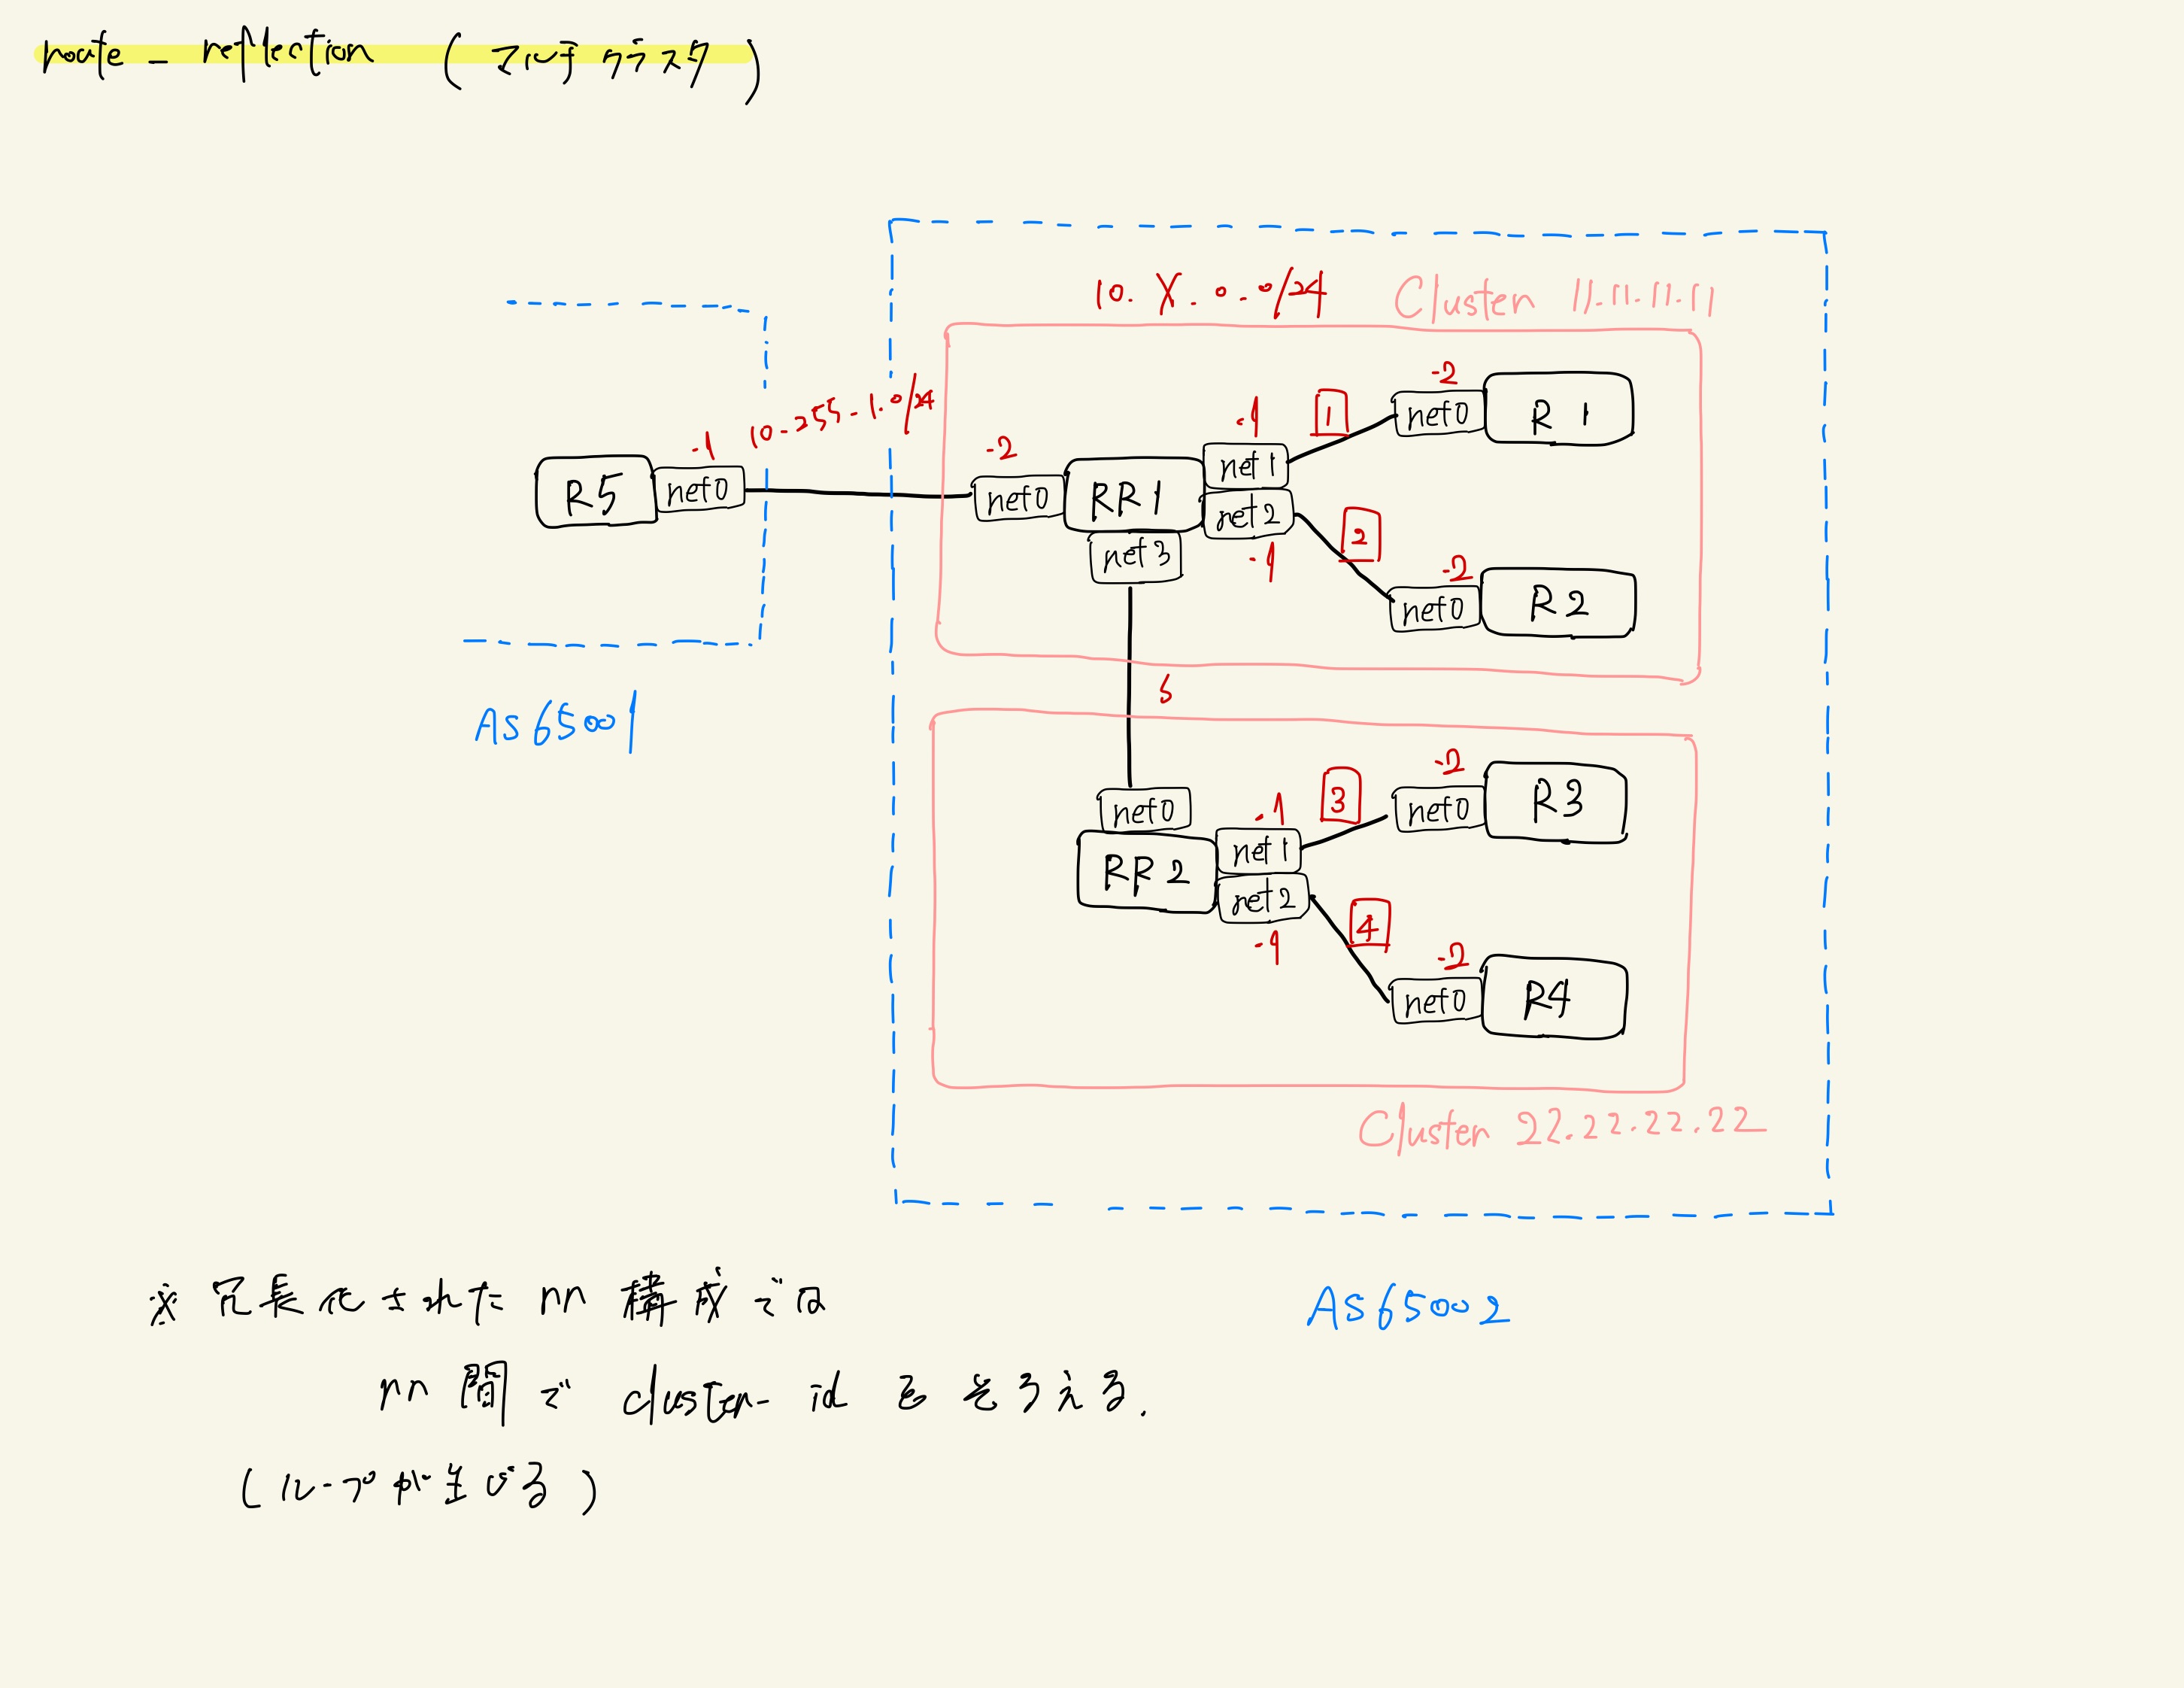 route-reflection (マルチクラスタ)
10.X.0.0/24
Cluster 11.11.11.11
10.255.1.0/24
.1
R5
net0
.2
net0
RR1
.1
net1
net2
.1
net3
1
.2
net0
R1
2
.2
net0
R2
5
AS65001
net0
RR2
.1
net1
net2
.1
3
.2
net0
R3
4
.2
net0
R4
Cluster 22.22.22.22
AS65002
※冗長化された rr 構成では
rr間で cluster-id をそろえる.
(ループが生じる)